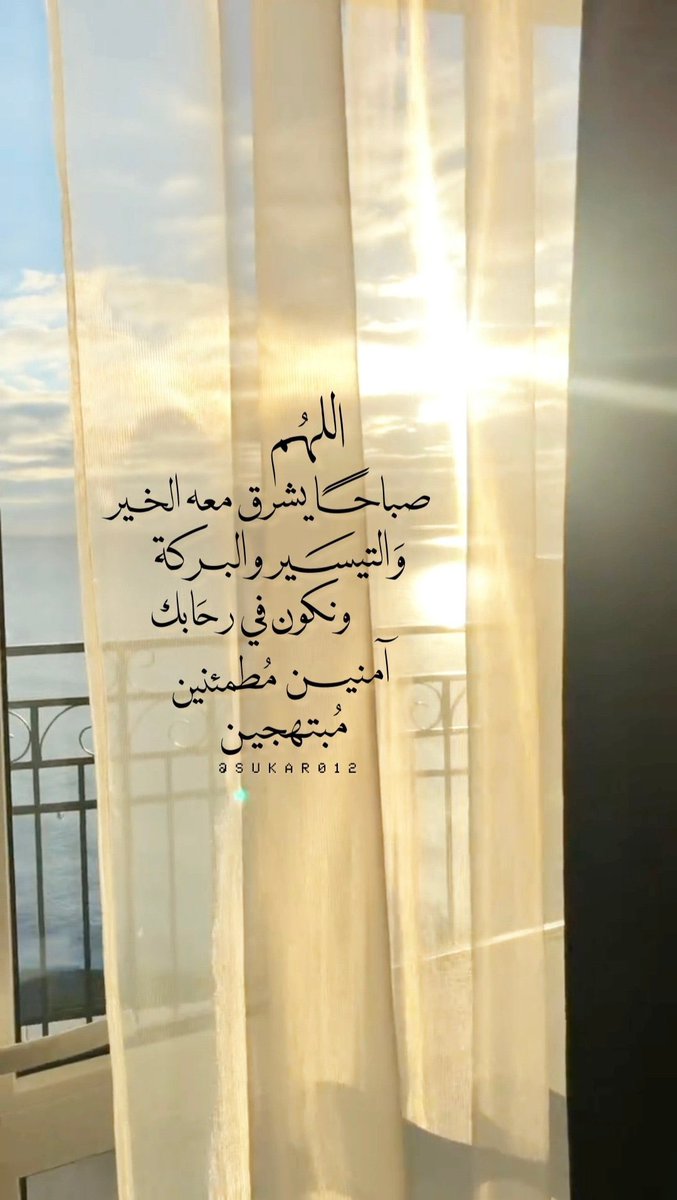 اللهُم
صباحًا يشرق معه الخير
وَالتيسَير والبركة
ونكون في رحَابك
آمنين مُطمئنين
مُبتهجين
@SUKAR012